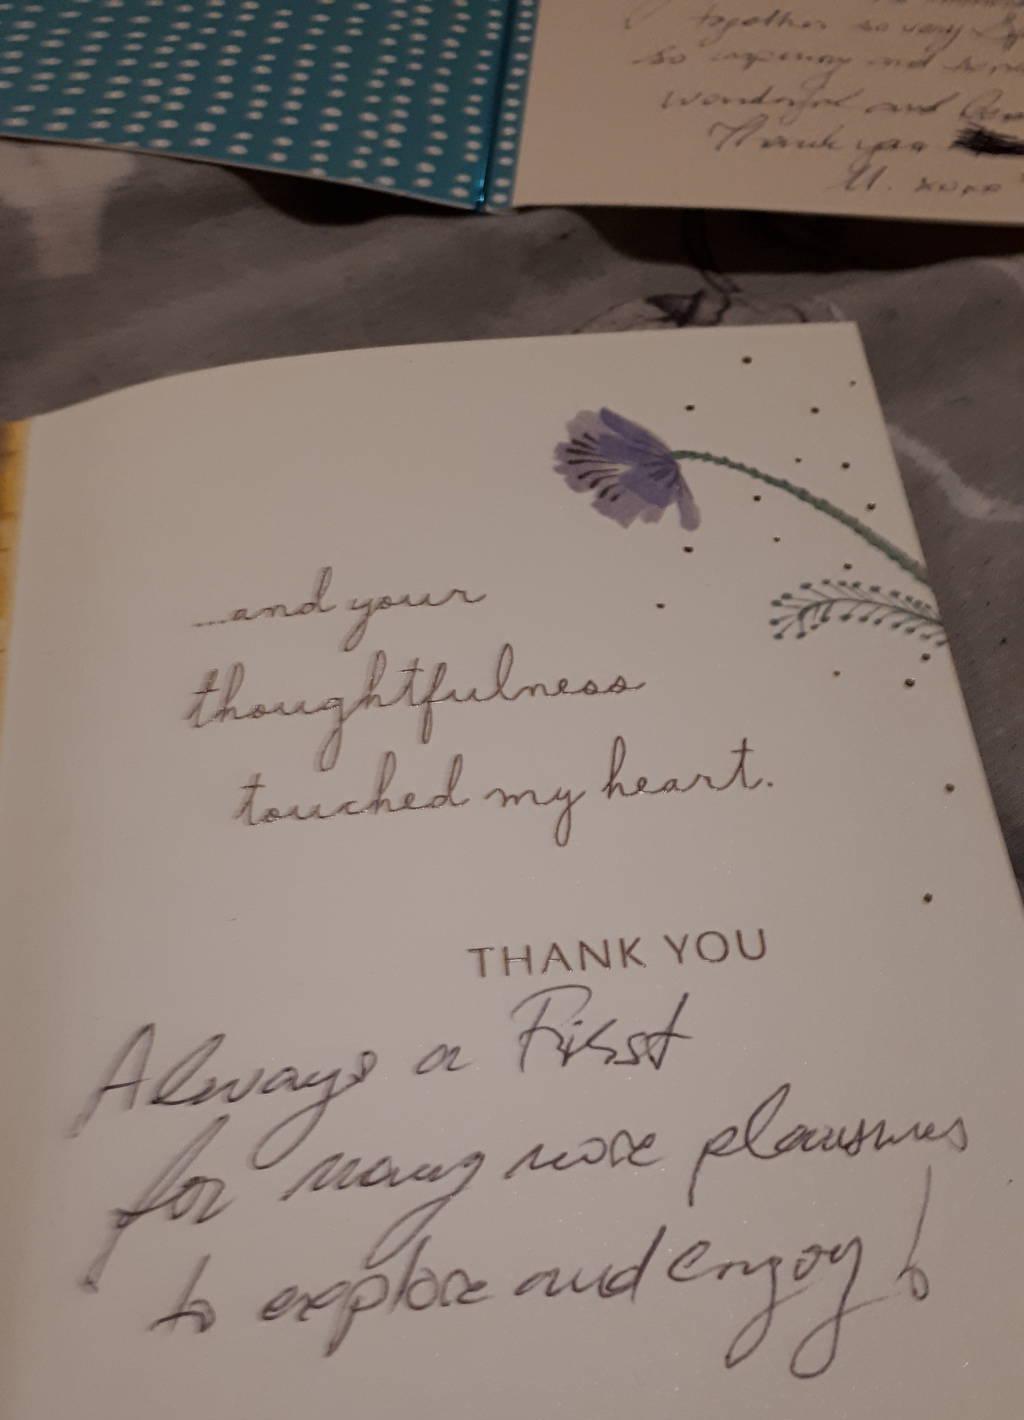 together so very
so and
wonderful and
Thank you
...and your
thoughtfulness
touched my heart.
THANK YOU
Always a First
for many more pleasures
to explore and enjoy!